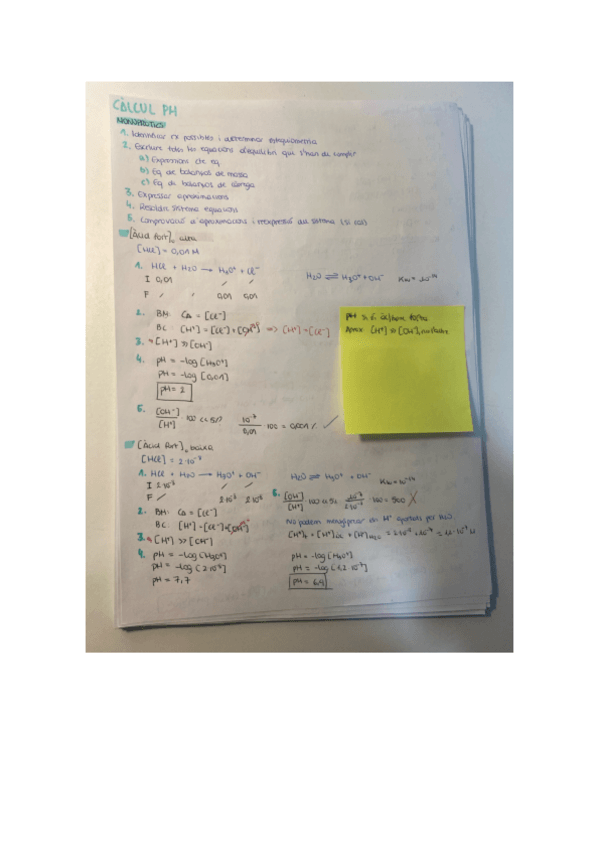 CÀLCUL PH
1. Identificar rx possibles i determinar estequiometria
2. Escriure totes les equacions d'equilibri que s'han de complir
a) Expressions de eq
b) Eq de balanços de massa
c) Eq de balanços de càrrega
3. Expressar aproximacions
4. Resoldre sistema equacions
5. Comprovació d'aproximacions i reexpressió du sistema (si cal)
[Àcid fort]o alta
[HCl] = 0,01 M
1. HCl + H2O → H3O+ + Cl-
H2O ⇌ H3O+ + OH- Kw = 10-14
I 0,01 / /
F / / 0,01 0,01
2. BM: Ca = [Cl-]
BC: [H+] = [Cl-] + [OH-] => [H+] = [Cl-]
3. [H+] >> [OH-]
4. pH = -log [H3O+]
pH = -log [0,01]
pH = 2
5. [OH-]/[H+] · 100 < 5% 10-7/0,01 · 100 = 0,001 % ✓
pH si és àc/base
Aprox [H+] >> [OH-]
[Àcid fort]o baixa
[HCl] = 2·10-8
1. HCl + H2O → H3O+ + OH-
H2O ⇌ H3O+ + OH- Kw = 10-14
I 2·10-8 / /
F / 2·10-8 2·10-8
2. BM: Ca = [Cl-]
BC: [H+] = [Cl-] + [OH-]
3. [H+] >> [OH-]
4. pH = -log [H3O+]
pH = -log [2·10-8]
pH = 7,7
5. [OH-]/[H+] · 100 < 5% 10-7/2·10-8 · 100 = 500 X
No podem menysprear els H+ aportats per H2O
[H+]t = [H+]HCl + [H+]H2O = 2·10-8 + 10-7 = 1,2·10-7 M
pH = -log [H3O+]
pH = -log [1,2·10-7]
pH = 6,9